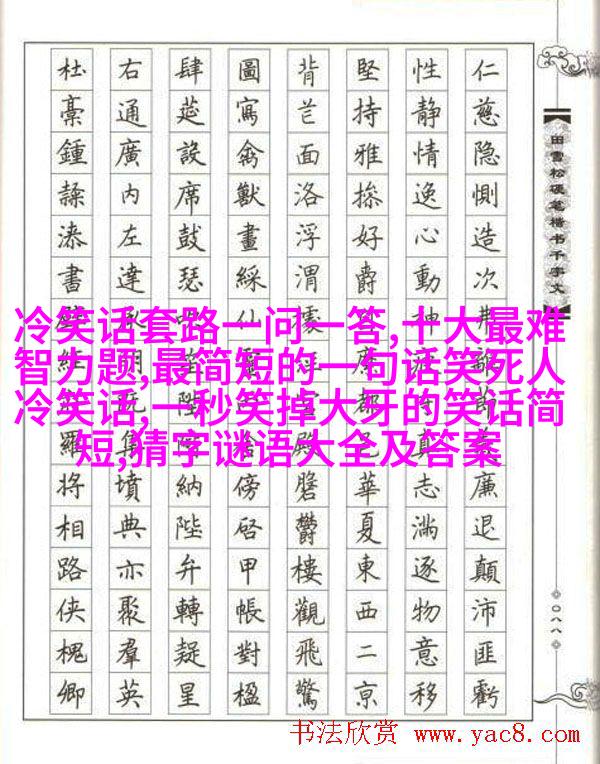 冷笑话套路一问一答,十大最难
智力题,最简短的一句话笑死人
冷笑话,一秒笑掉大牙的笑话简
短,猜字谜语大全及答案
仁慈隐惻造次弗節廉退顛沛匪虧
性静情逸心動神真志滿逐物意移
堅持雅操好爵縻都邑華夏東西二京
背芒面洛浮渭據宮殿盤鬱樓觀飛驚
圖寫禽獸畫綵仙靈舍傍啓甲帳對楹
肆筵設席鼓瑟陞納陛弁轉疑星
右通廣内左達承明既集墳典亦聚羣英
杜稾鍾隸漆書壁經羅將相路俠槐卿
田雪松硬笔楷书千字文
〇八八
书法欣赏 www.yac8.com